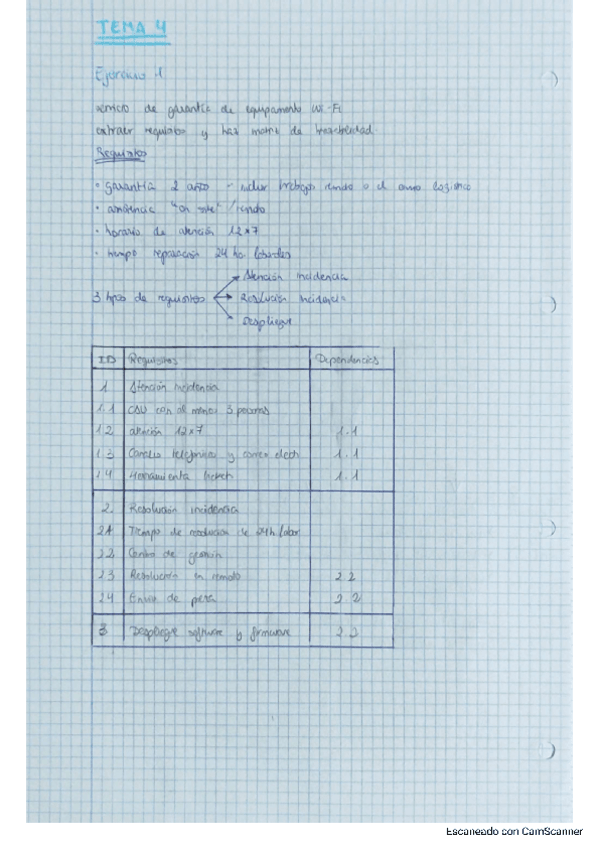 TEMA 4
Ejercicio 1
servicio de garantía de equipamento Wi-Fi
extraer requisitos y haz matriz de trazabilidad.
Requisitos
• garantía 2 años - incluir trabajos remoto o el envio logistico
• asistencia "on site" / remoto
• horario de atención 12*7
• tiempo reparación 24 ho laborales
3 tipos de requisitos
Atención incidencia
Resolución incidencia
Despliegue
ID Requisitos Dependencias
1 Atención incidencia
1.1 CSU con al menos 3 personas
1.2 atención 12*7 1.1
1.3 Canales telefonico y correo elect 1.1
1.4 Herramienta 1.1
2. Resolución incidencia
2.1 Tiempo de resolución de 24h/labor
2.2 Centro de gestión
2.3 Resolución en remoto 2.2
2.4 Envio de pieza 2.2
3 Despliegue software y firmware 2.2
Escaneado con CamScanner